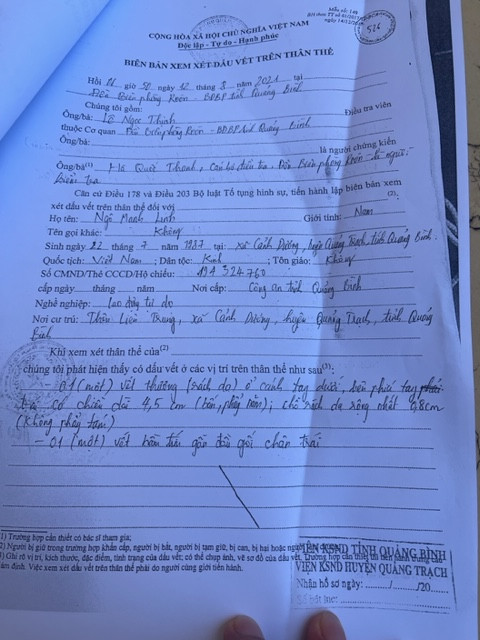 Mẫu số: 148
CỘNG HÒA XÃ HỘI CHỦ NGHĨA VIỆT NAM
Độc lập - Tự do - Hạnh phúc
BIÊN BẢN XEM XÉT DẤU VẾT TRÊN THÂN THỂ
Hồi giờ 50 ngày 12 tháng 3 năm 2021 tại
Đồn Biên phòng Roòn - BĐBP tỉnh Quảng Bình
Chúng tôi gồm:
Ông/bà: Lê Ngọc Thịnh Điều tra viên
thuộc Cơ quan Đồn Biên phòng Roòn - BĐBP tỉnh Quảng Bình
Ông/bà: là người chứng kiến
Ông/bà(1) Hồ Quốc Thanh, Cán bộ điều tra, Đồn Biên phòng Roòn - là người
Căn cứ Điều 178 và Điều 203 Bộ luật Tố tụng hình sự, tiến hành lập biên bản xem
xét dấu vết trên thân thể đối với (2):
Họ tên: Ngô Manh Linh Giới tính: Nam
Tên gọi khác: Không
Sinh ngày 22 tháng 7 năm 1987 tại: xã Cảnh Dương, huyện Quảng Trạch, tỉnh Quảng Bình
Quốc tịch: Việt Nam; Dân tộc: Kinh; Tôn giáo: Không
Số CMND/Thẻ CCCD/Hộ chiếu: 194 324 760
cấp ngày tháng năm Nơi cấp: Công an tỉnh Quảng Bình
Nghề nghiệp: Lao động tự do
Nơi cư trú: Thôn Liên Trung, xã Cảnh Dương, huyện Quảng Trạch, tỉnh Quảng
Bình
Khi xem xét thân thể của(2)
chúng tôi phát hiện thấy có dấu vết ở các vị trí trên thân thể như sau(3):
- 01 (một) vết thương (rách da) ở cánh tay dưới, bên phía tay phải
có chiều dài 4,5 cm (bốn, phẩy năm); chỗ rách da rộng nhất 0,8cm
(không phẩy tám)
- 01 (một) vết bầm tím gần đầu gối chân trái
(1) Trường hợp cần thiết có bác sĩ tham gia;
(2) Người bị giữ trong trường hợp khẩn cấp, người bị bắt, người bị tạm giữ, bị can, bị hại hoặc người
(3) Ghi rõ vị trí, kích thước, đặc điểm, tình trạng của dấu vết; có thể chụp ảnh, vẽ sơ đồ của dấu vết. Trường hợp cần thiết thì tiến hành trưng cầu
giám định. Việc xem xét dấu vết trên thân thể phải do người cùng giới tiến hành.
VIỆN KSND TỈNH QUẢNG BÌNH
VIỆN KSND HUYỆN QUẢNG TRẠCH
Nhận hồ sơ ngày: / /20
Số bút lục: